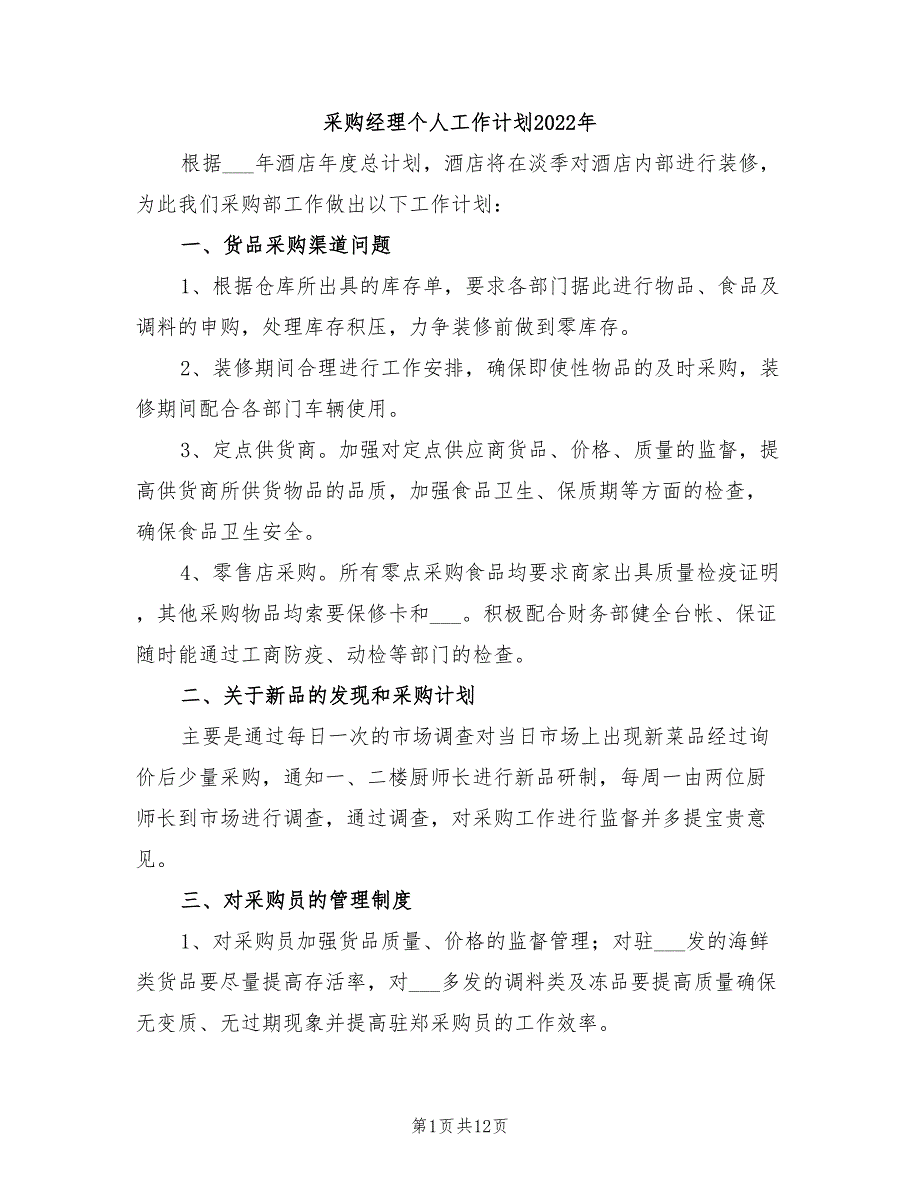 采购经理个人工作计划2022年
根据___年酒店年度总计划，酒店将在淡季对酒店内部进行装修，
为此我们采购部工作做出以下工作计划：
一、货品采购渠道问题
1、根据仓库所出具的库存单，要求各部门据此进行物品、食品及
调料的申购，处理库存积压，力争装修前做到零库存。
2、装修期间合理进行工作安排，确保即使性物品的及时采购，装
修期间配合各部门车辆使用。
3、定点供货商。加强对定点供应商货品、价格、质量的监督，提
高供货商所供货物品的品质，加强食品卫生、保质期等方面的检查，
确保食品卫生安全。
4、零售店采购。所有零点采购食品均要求商家出具质量检疫证明
，其他采购物品均索要保修卡和___。积极配合财务部健全台帐、保证
随时能通过工商防疫、动检等部门的检查。
二、关于新品的发现和采购计划
主要是通过每日一次的市场调查对当日市场上出现新菜品经过询
价后少量采购，通知一、二楼厨师长进行新品研制，每周一由两位厨
师长到市场进行调查，通过调查，对采购工作进行监督并多提宝贵意
见。
三、对采购员的管理制度
1、对采购员加强货品质量、价格的监督管理；对驻___发的海鲜
类货品要尽量提高存活率，对___多发的调料类及冻品要提高质量确保
无变质、无过期现象并提高驻郑采购员的工作效率。
第1页共12页